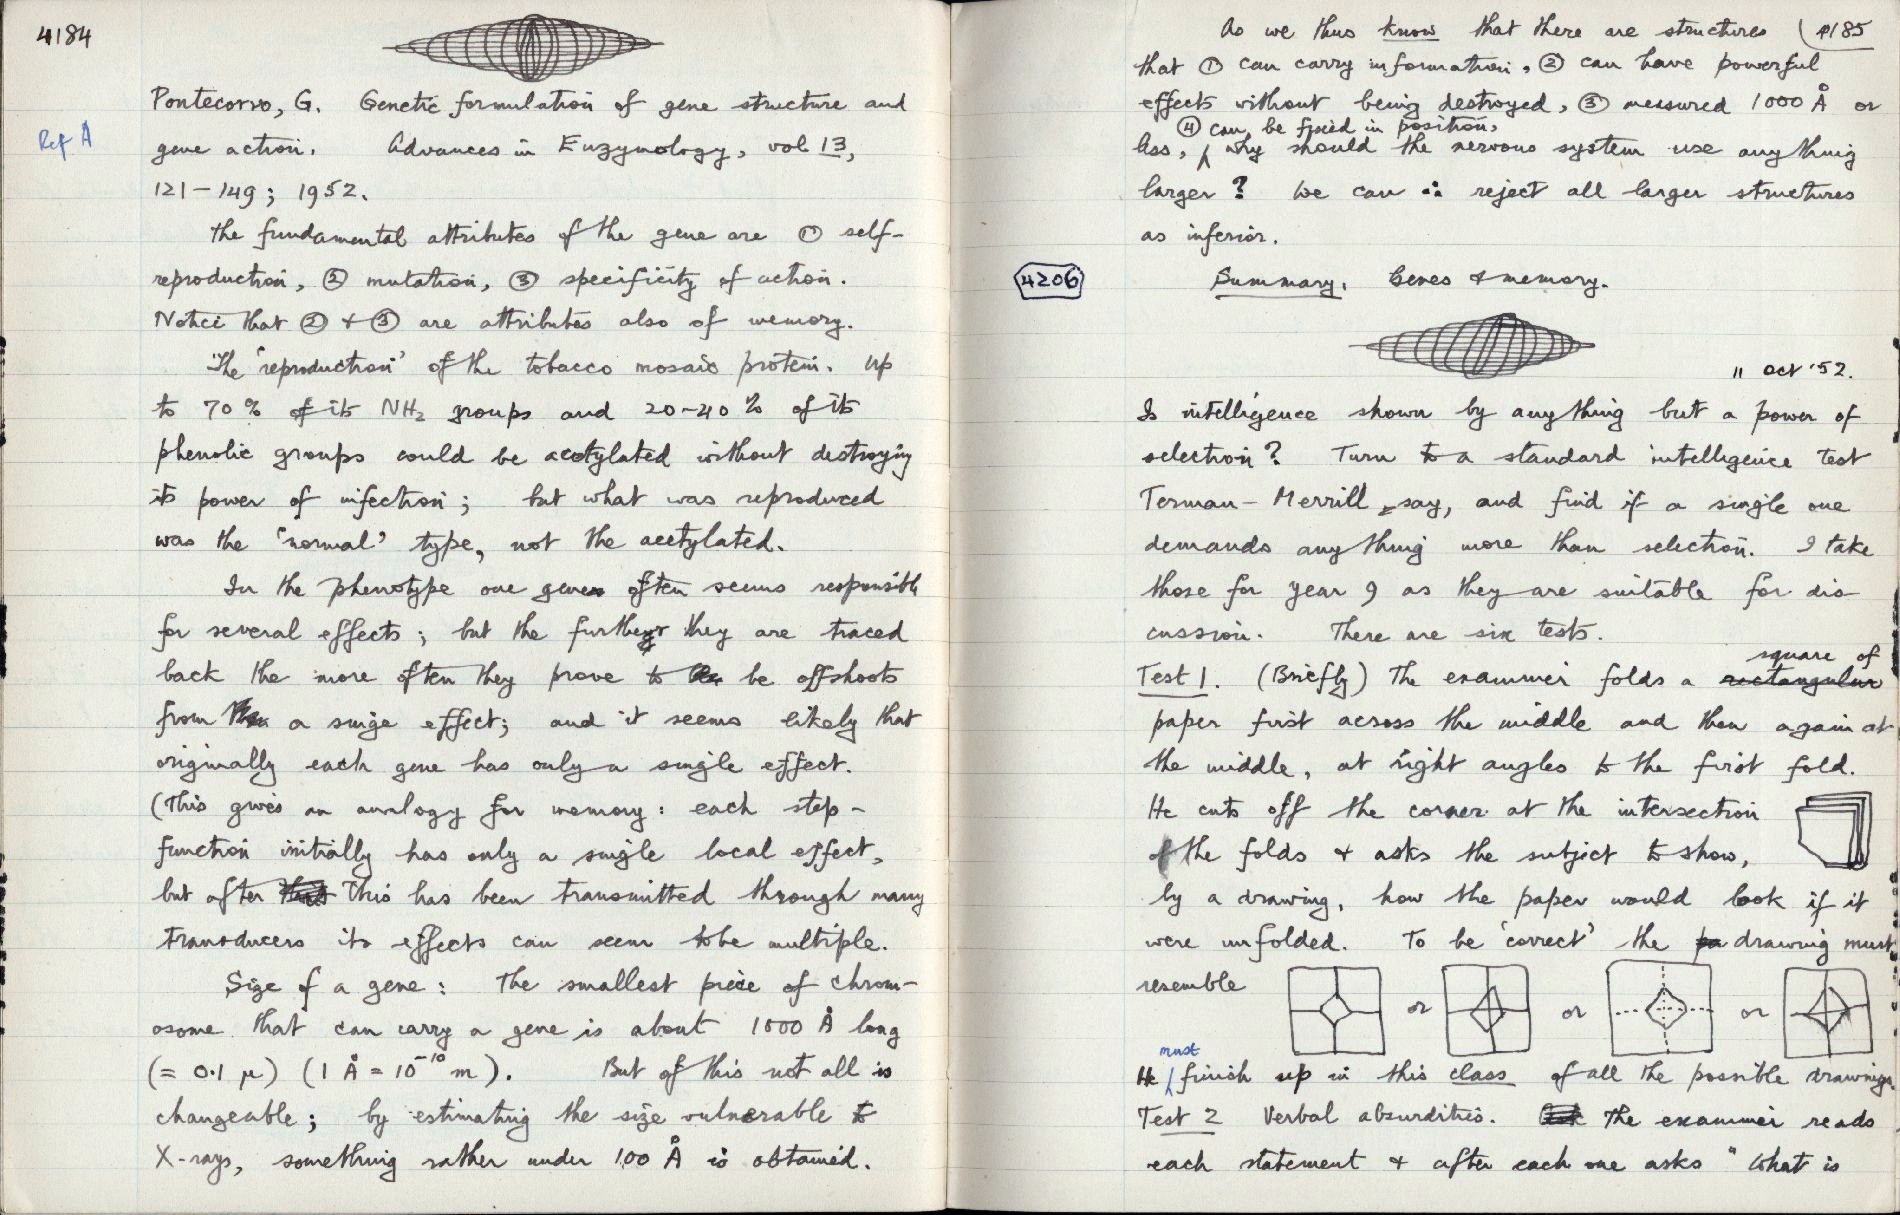 4184
Pontecorvo, G. Genetic formulation of gene structure and
Ref A
gene action. Advances in Enzymology, vol 13,
121-149; 1952.
The fundamental attributes of the gene are ① self-
reproduction, ② mutation, ③ specificity of action.
Notice that ② + ③ are attributes also of memory.
The 'reproduction' of the tobacco mosaic protein. Up
to 70% of its NH₂ groups and 20-40% of its
phenolic groups could be acetylated without destroying
its power of infection; but what was reproduced
was the 'normal' type, not the acetylated.
In the phenotype one gene often seems responsible
for several effects; but the further they are traced
back the more often they prove to be offshoots
from a singe effect; and it seems likely that
originally each gene has only a single effect.
(This gives an analogy for memory: each step-
function initially has only a single local effect,
but after this has been transmitted through many
transducers its effects can seem to be multiple.
Size of a gene: The smallest piece of chrom-
osome that can carry a gene is about 1000 Å long
(= 0.1 μ) (1 Å = 10⁻¹⁰ m). But of this not all is
changeable; by estimating the size vulnerable to
X-rays, something rather under 100 Å is obtained.
4185
As we thus know that there are structures
that ① can carry information, ② can have powerful
effects without being destroyed, ③ measured 1000 Å or
④ can be fixed in position,
less, why should the nervous system use anything
larger? We can ∴ reject all larger structures
as inferior.
4206
Summary. Genes + memory.
11 Oct '52.
Is intelligence shown by anything but a power of
selection? Turn to a standard intelligence test
Terman-Merrill, say, and find if a single one
demands anything more than selection. I take
those for year 9 as they are suitable for dis-
cussion. There are six tests.
square of
Test 1. (Briefly) The examiner folds a rectangular
paper first across the middle and then again at
the middle, at right angles to the first fold.
He cuts off the corner at the intersection
of the folds + asks the subject to show,
by a drawing, how the paper would look if it
were unfolded. To be 'correct' the drawing must
resemble or or or
must
He finish up in this class of all the possible drawings.
Test 2 Verbal absurdities. The examiner reads
each statement + after each one asks "What is